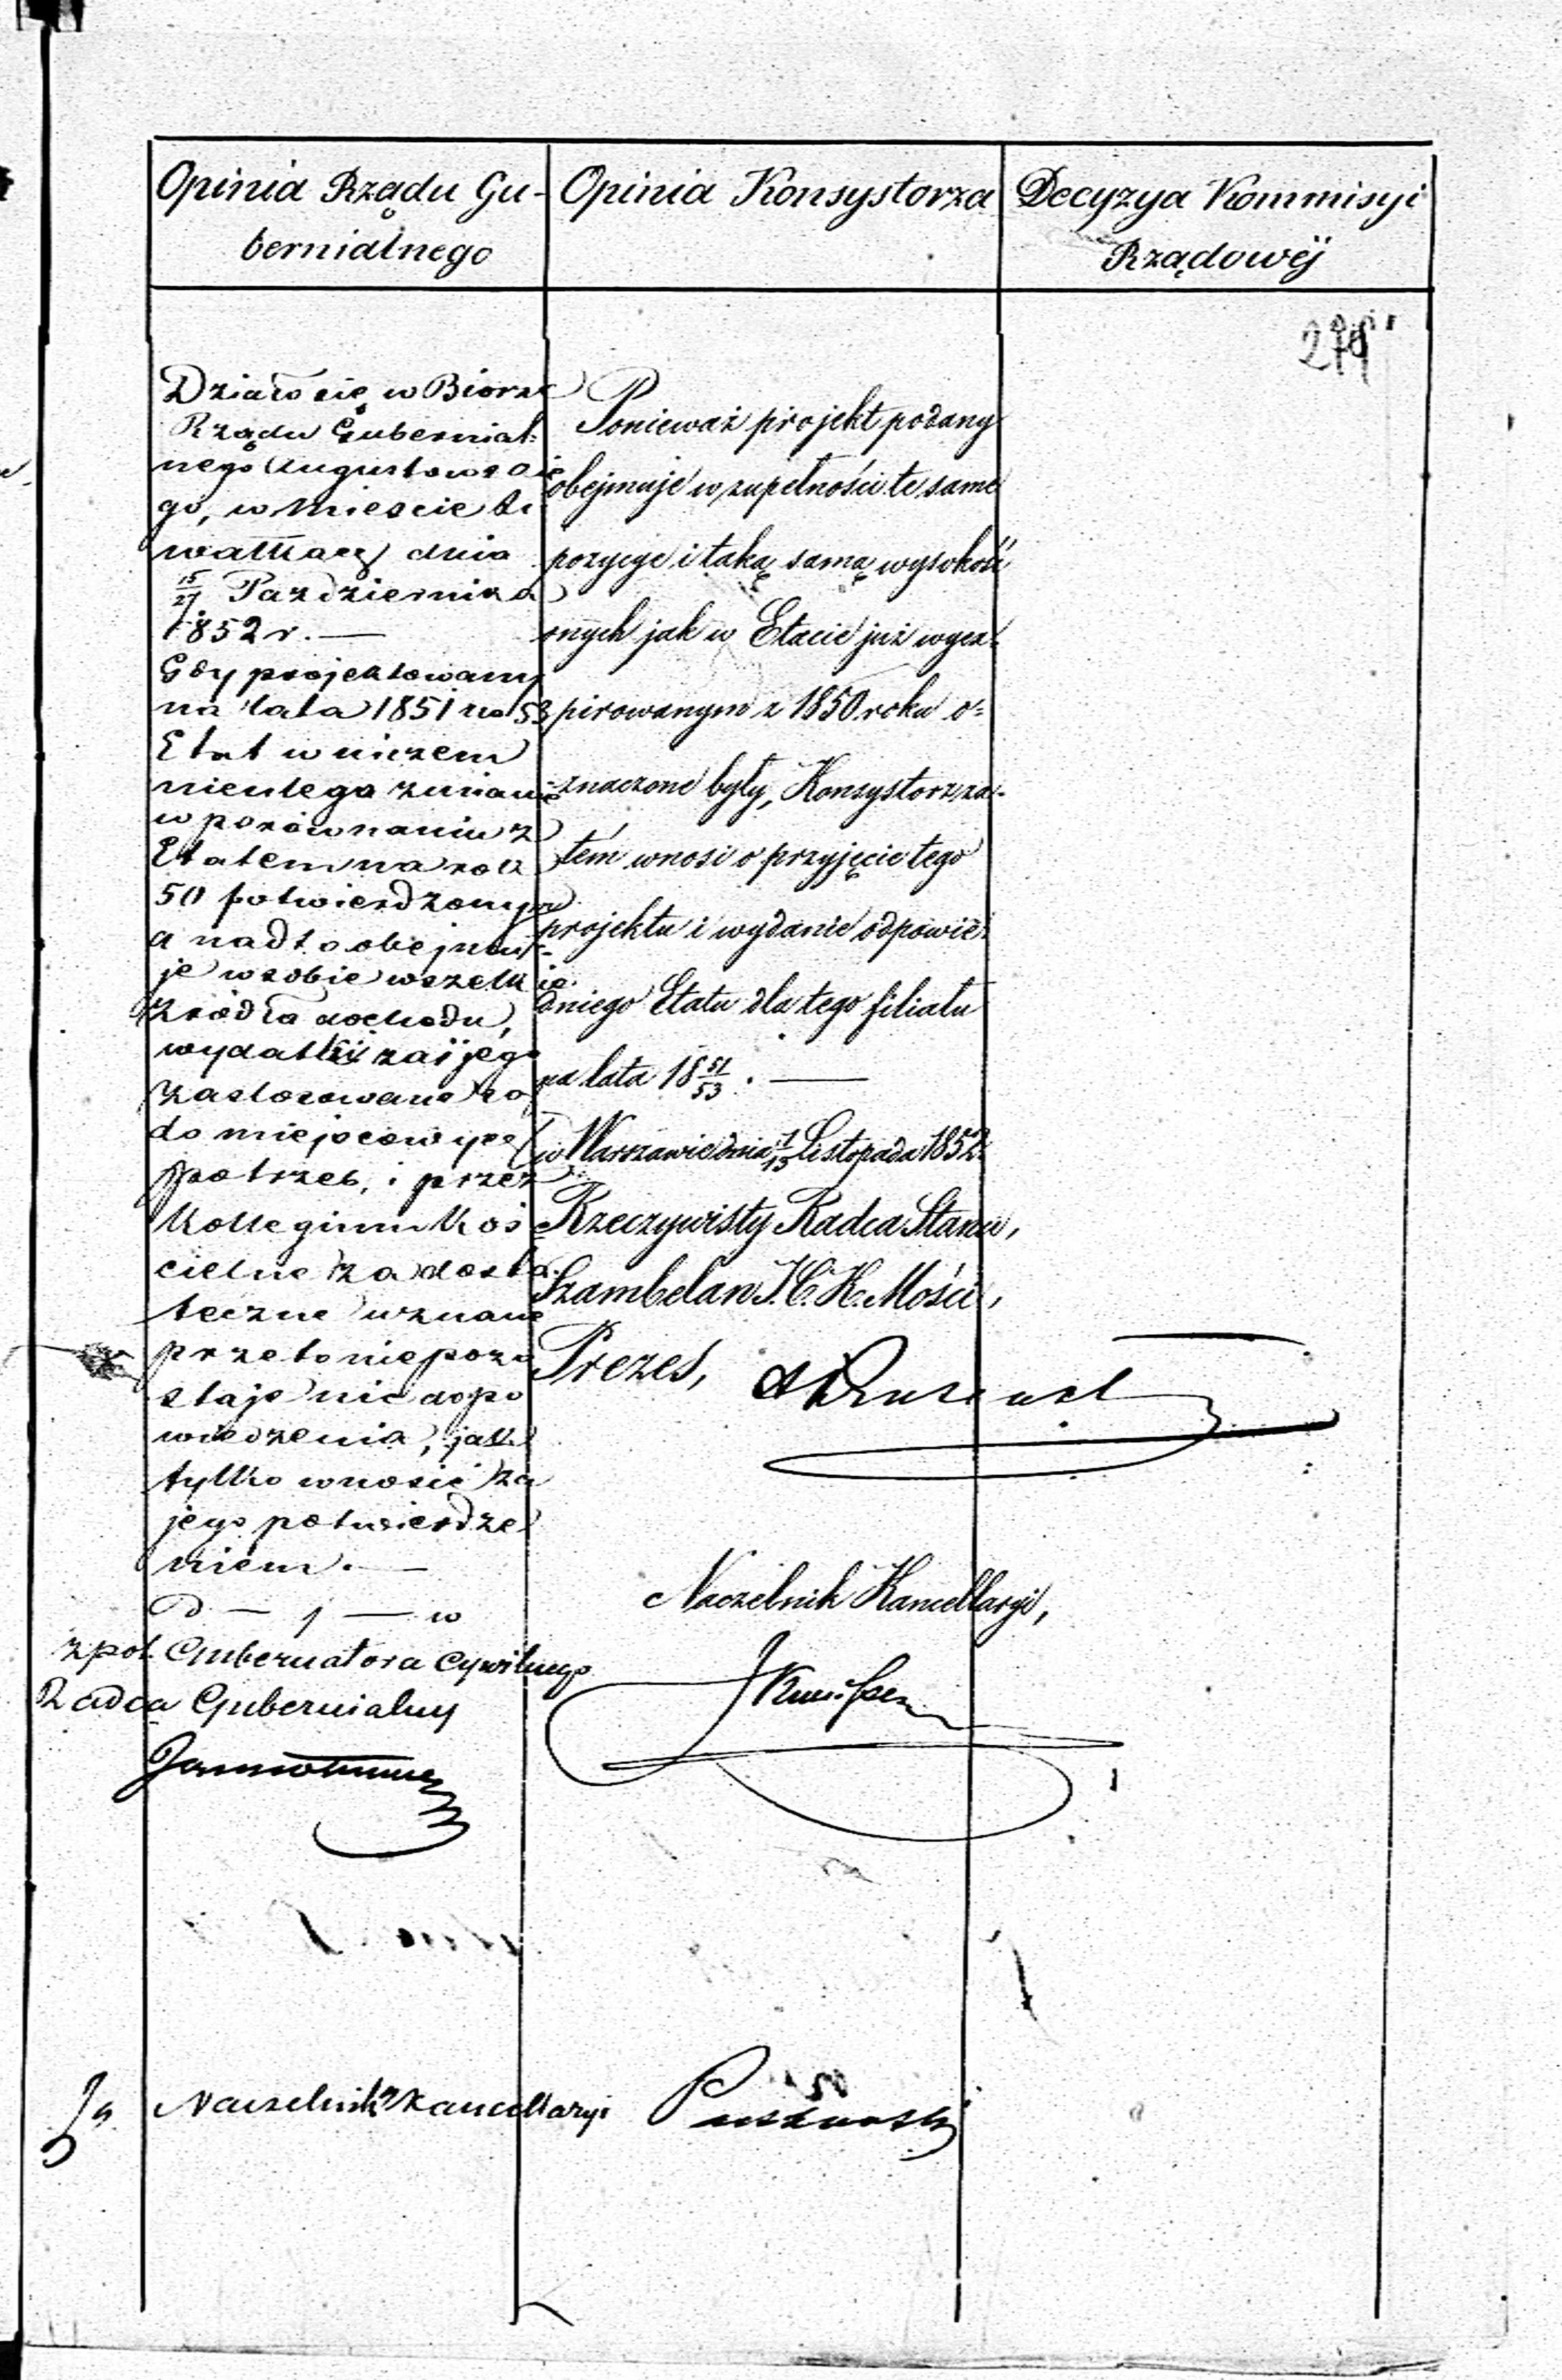 Opinia Rządu Gu-
bernialnego
Opinia Konsystorza
Decyzya Kommisyi
Rządowéj
Działo się w Biorze
Rządu Gubernial-
nego Augustowskie
go, w mieście Su
wałkach dnia
15/27 Pazdziernika
1852 r. —
Gdy projektowany
na lata 1851 na 53
Etat w niczem
nieulega zmianie
w porównaniu z
Etatem na rok
50 potwierdzonym
a nadto obejmu-
je w sobie wszelkie
źródła dochodu,
wydatki zaś jego
zastosowane są
do miejscowych
potrzeb, i przez
Kollegium Koś
cielne za dosta
teczne uznane
przeto niepozo
staje nic do po
wiedzenia, jak
tylko wnosić za
jego potwierdze
niem. —
z pol. Gubernatora Cywilnego
Radca Gubernialny
Naczelnik Kancellaryi
Ponieważ projekt podany
obejmuje w zupełności te same
pozycye i taką samą wysokość
onych jak w Etacie już wyex-
pirowanym z 1850 roku o-
znaczone były, Konsystorz za-
tém wnosi o przyjęcie tego
projektu i wydanie odpowie-
dniego Etatu dla tego filiału
na lata 18 51/53. —
w Warszawie dnia 1/13 Listopada 1852.
Rzeczywisty Radca Stanu,
Szambelan J. C. K. Mości,
Prezes,
Naczelnik Kancellaryi,